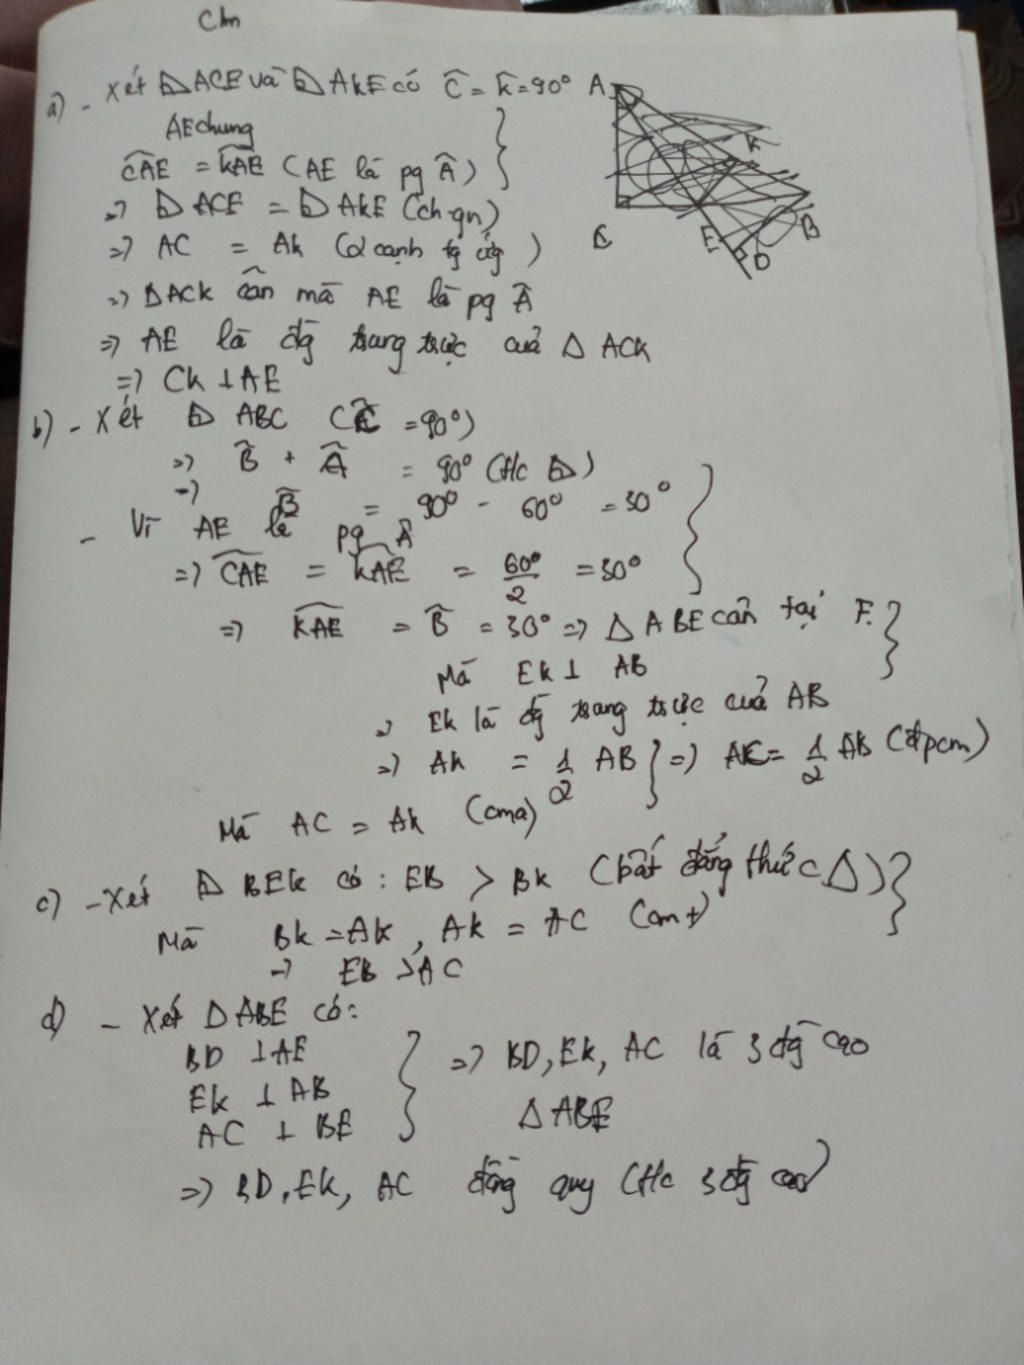 Cm
a) - Xét ⊿ ACE và ⊿ AKE có Ĉ = K̂ = 90°
AE chung
CAE = KAE (AE là pg Â)
=> ⊿ ACE = ⊿ AKE (ch-gn)
=> AC = AK (2 cạnh tg ứg)
=> Δ ACK cân mà AE là pg Â
=> AE là đg trung trực của Δ ACK
=> CK ⊥ AE
A
K
C
E
B
D
b) - Xét ⊿ ABC (Ĉ = 90°)
=> B̂ + Â = 90° (t/c ⊿)
=> B̂ = 90° - 60° = 30°
- Vì AE là pg Â
=> CAE = KAE = 60°/2 = 30°
=> KAE = B̂ = 30° => Δ ABE cân tại E.
Mà EK ⊥ AB
=> EK là đg trung trực của AB
=> AK = 1/2 AB => AC = 1/2 AB (đpcm)
Mà AC = AK (cma)
c) - Xét ⊿ BEK có : EB > BK (bất đẳng thức Δ)
Mà BK = AK , AK = AC (cmt)
=> EB > AC
d) - Xét Δ ABE có:
BD ⊥ AE
EK ⊥ AB => BD, EK, AC là 3 đg cao
AC ⊥ BE Δ ABE
=> BD, EK, AC đồng quy (t/c 3 đg cao)